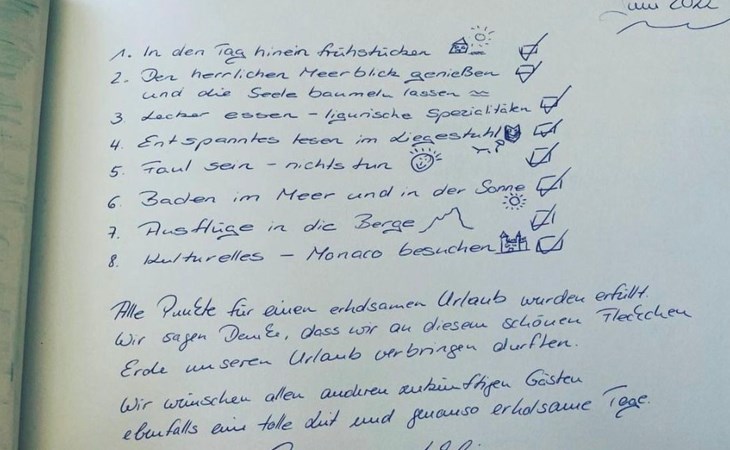 Juni 2022
1. In den Tag hinein frühstücken
2. Den herrlichen Meerblick genießen
und die Seele baumeln lassen
3 Lecker essen - ligurische Spezialitäten
4. Entspanntes lesen im Liegestuhl
5. Faul sein - nichts tun
6. Baden im Meer und in der Sonne
7. Ausflüge in die Berge
8. Kulturelles - Monaco besuchen
Alle Punkte für einen erholsamen Urlaub wurden erfüllt.
Wir sagen Danke, dass wir an diesem schönen Fleckchen
Erde unseren Urlaub verbringen durften.
Wir wünschen allen anderen zukünftigen Gästen
ebenfalls eine tolle Zeit und genauso erholsame Tage.